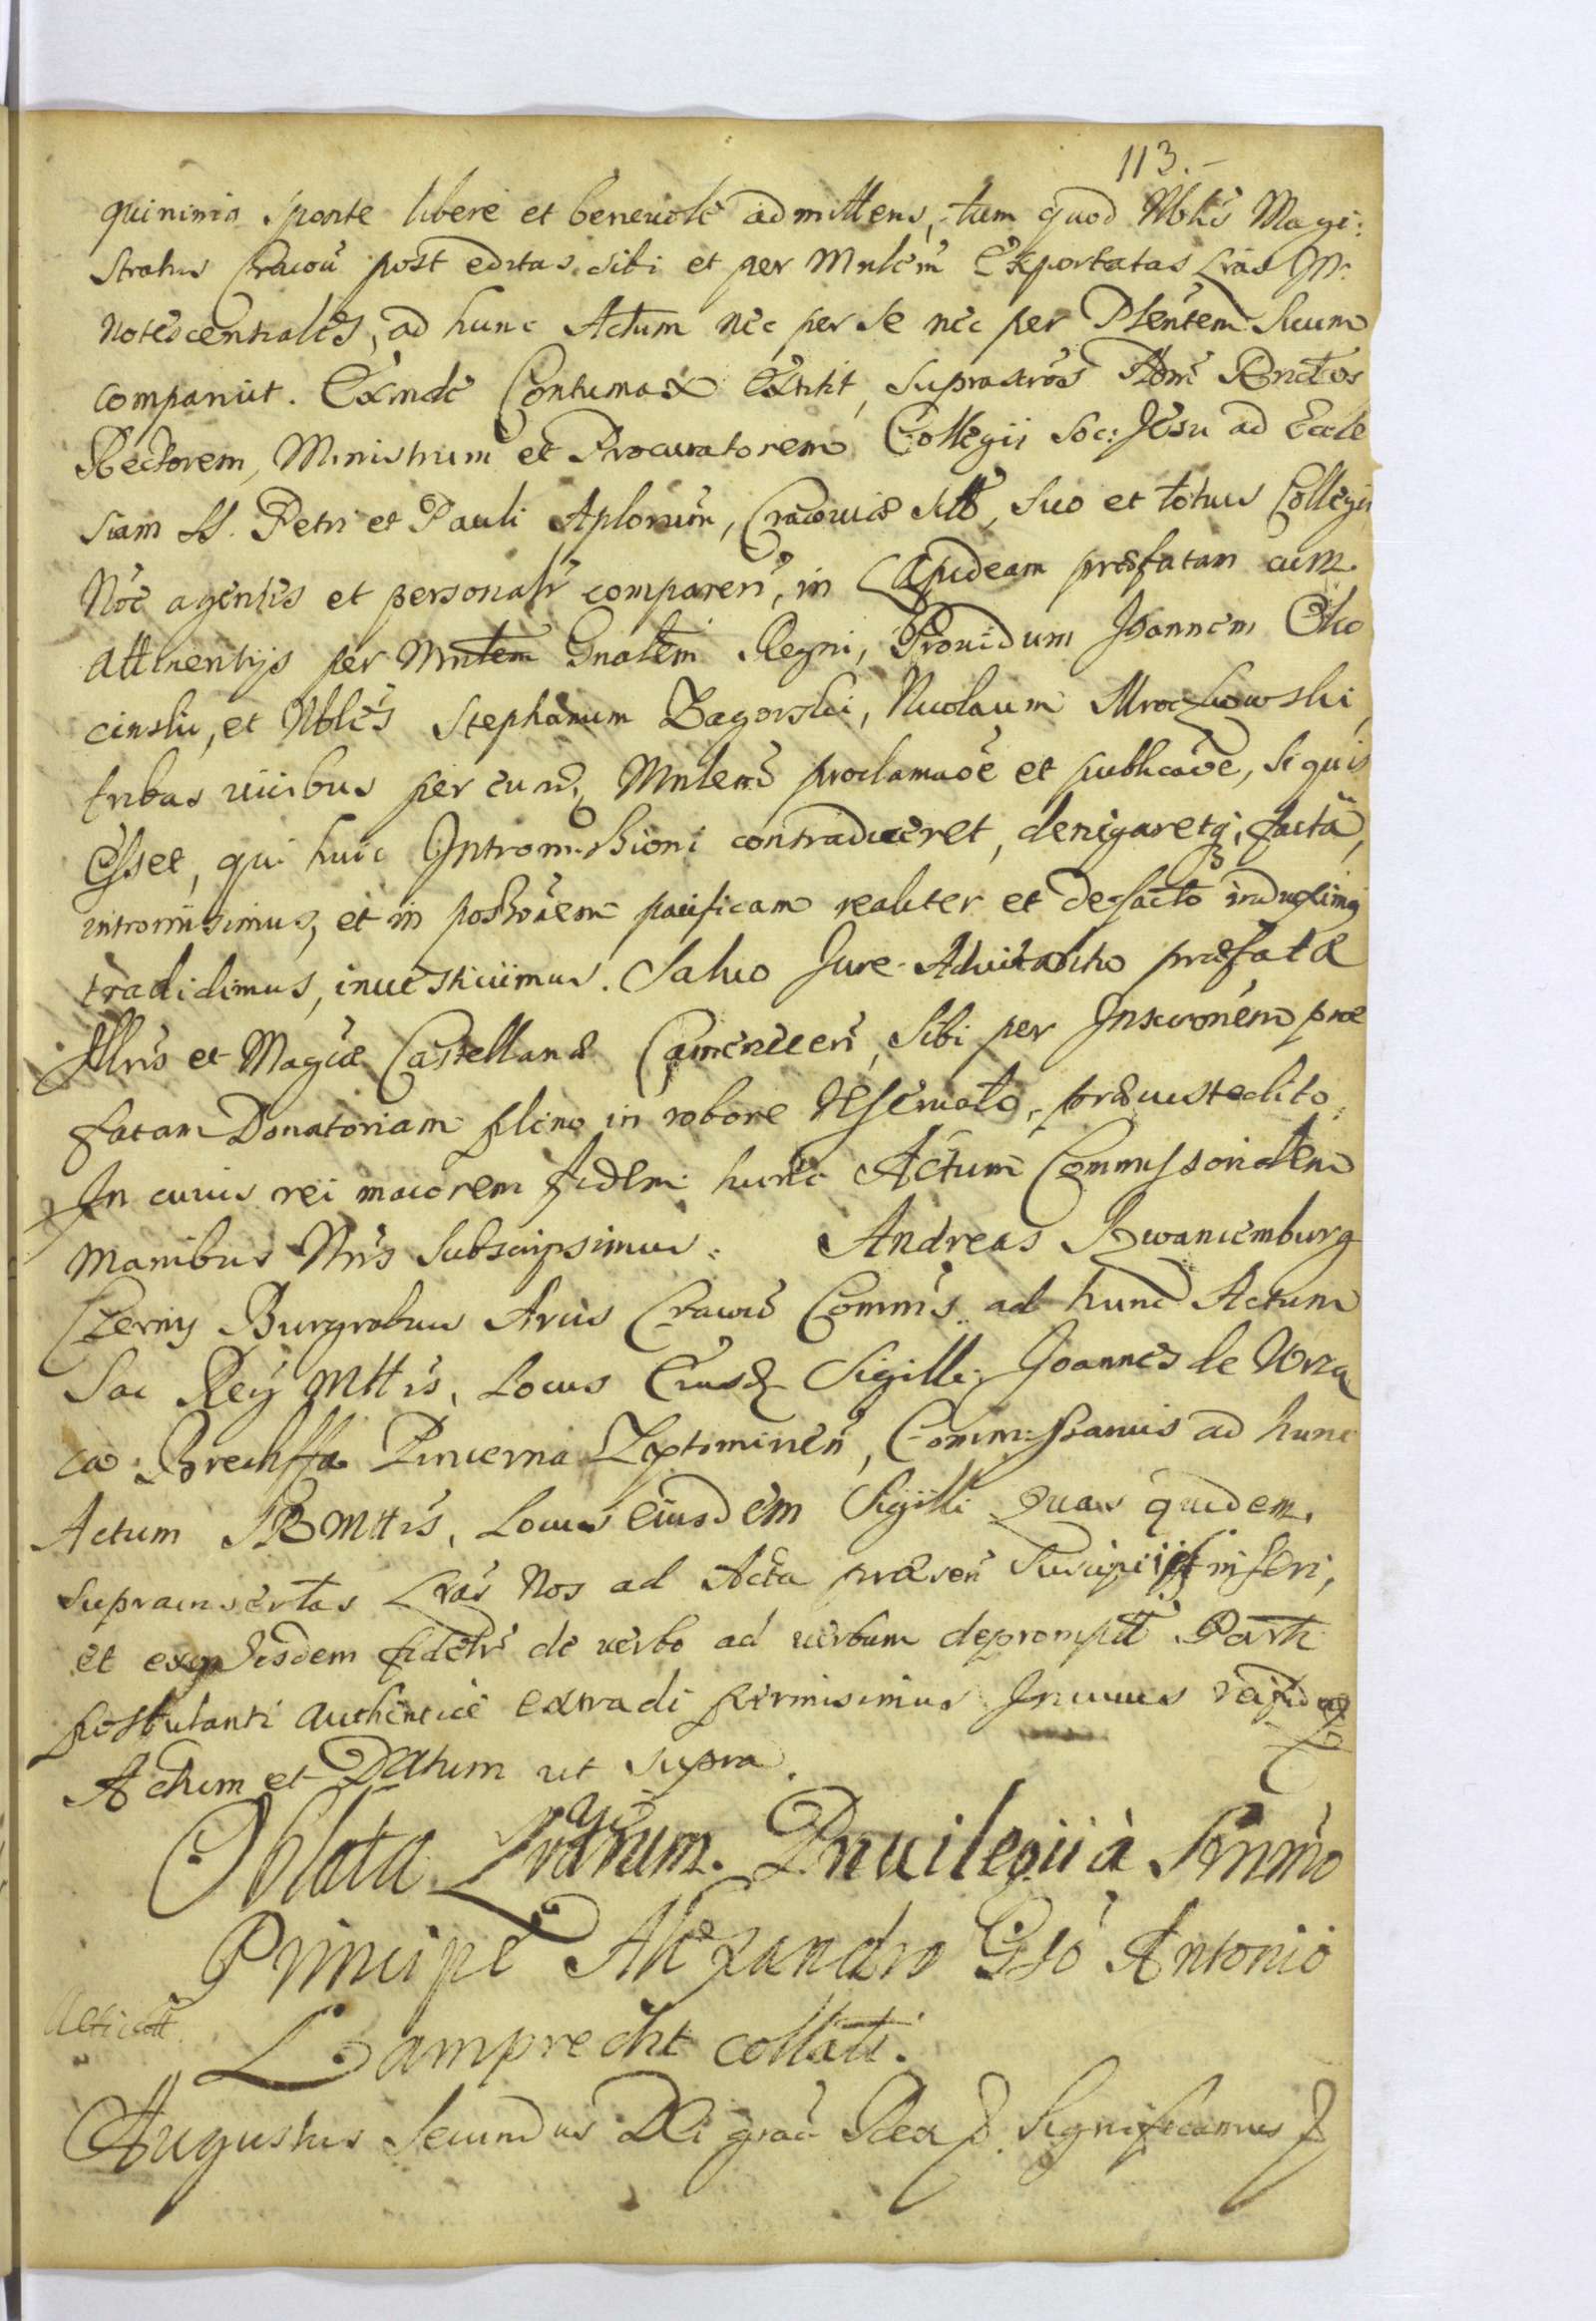 113.-
quinimo sponte libere et beneuole admittens, tum quod Nblis Magi:
stratus Cracou post editas sibi et per Mnlem exportatas Lras In:
notescentiales, ad hunc Actum nec per se nec per Plentem suum
comparuit. Exinde Contumax extitit, suprascros Adm Rndos
Rectorem, Ministrum et Procuratorem Collegij Soc: Jesu ad Eccle
siam SS. Petri et Pauli Aplorum, Cracouiæ sitt, suo et totius Collegij
Noe agentes et personalr comparen, in Lapideam præfatam cum
attinentijs per Mnlem Gnalem Regni, Prouidum Joannem
et Nbles Stephanum Zagorski, Nicolaum Mroczkowski,
tribus uicibus per eund Mnlem proclamaoe et publicaoe, si quis
esset, qui huic Intromissioni contradiceret, denegaretq, facta,
intromisimus, et in possionem pacificam realiter et de facto induximq
tradidimus, inuestiuimus. Saluo Jure Aduitalitio præfatæ
Illris et Magcæ Castellanæ Camenecen, sibi per Inscronem præ
fatam Donatoriam pleno in robore reseruato, præuustedito
In cuius rei maiorem fidem hunc Actum Commissorialem
manibus Nris subscripsimus: Andreas Zwaniemburg
Czerny Burgrabius Arcis Cracou Commis. ad hunc Actum
Sac Reg Mttis, Locus eiusd Sigilli, Joannes de
ca Brechffa Pincerna, Commissarius ad hunc
Actum SRMttis, Locus eiusdem Sigilli Quas quidem
suprainsertas Lras Nos ad Acta præsen suscipi et inseri,
et ex eisdem fidelr de uerbo ad uerbum deprompt Parti
postulanti authentice extradi permisimus In cuius rei fidem
Actum et Datum ut supra.
Oblata Lrarum. Priuilegii à Sermo
Principe Alexandro Gso Antonio
acticatt.
Lamprecht collati.
Augustus Secundus Dei graa Rex p. Significamus p